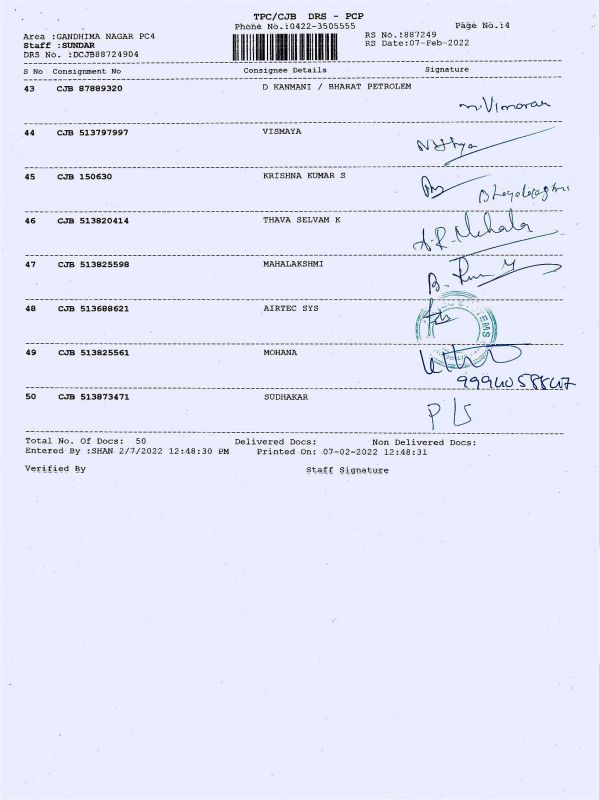 TPC/CJB DRS - PCP
Phone No.:0422-3505555 Page No.:4
Area :GANDHIMA NAGAR PC4 RS No.:887249
Staff :SUNDAR RS Date:07-Feb-2022
DRS No. :DCJB88724904
S No Consignment No Consignee Details Signature
43 CJB 87889320 D KANMANI / BHARAT PETROLEM
44 CJB 513797997 VISMAYA
Nithya
45 CJB 150630 KRISHNA KUMAR S
46 CJB 513820414 THAVA SELVAM K
A.R. Mehala
47 CJB 513825598 MAHALAKSHMI
48 CJB 513688621 AIRTEC SYS
49 CJB 513825561 MOHANA
50 CJB 513873471 SUDHAKAR
Total No. Of Docs: 50 Delivered Docs: Non Delivered Docs:
Entered By :SHAN 2/7/2022 12:48:30 PM Printed On: 07-02-2022 12:48:31
Verified By Staff Signature